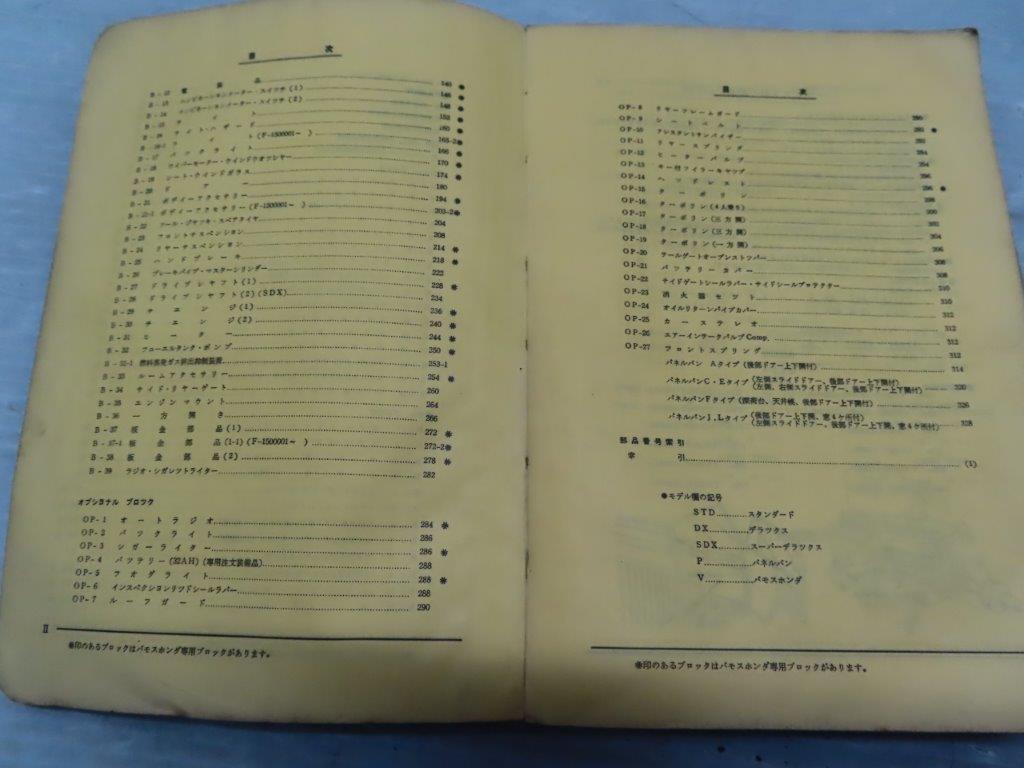 目 次
B-12 電装品 140 ※
B-13 コンビネーションメーター・スイツチ(1) 146 ※
B-14 コンビネーションメーター・スイツチ(2) 148 ※
B-15 ライト 152 ※
B-16 ライト・ハザード 160 ※
B-16-1 ライト(F-1500001~ ) 165-2※
B-17 バックライト 166 ※
B-18 ワイパーモーター・ウインドウオツシヤー 170 ※
B-19 シート・ウインドガラス 174 ※
B-20 ドアー 180
B-21 ボディーアクセサリー 194 ※
B-21-1 ボディーアクセサリー(F-1500001~ ) 203-2※
B-22 ツール・ジヤツキ・スペアタイヤ 204
B-23 フロントサスペンション 208
B-24 リヤーサスペンション 214 ※
B-25 ハンドブレーキ 218 ※
B-26 ブレーキパイプ・マスターシリンダー 222
B-27 ドライブシャフト(1) 228 ※
B-28 ドライブシャフト(2)(SDX) 234
B-29 チエンジ(1) 236 ※
B-30 チエンジ(2) 240 ※
B-31 ヒーター 244 ※
B-32 フューエルタンク・ポンプ 250 ※
B-32-1 燃料蒸発ガス排出抑制装置 253-1
B-33 ルームアクセサリー 254 ※
B-34 サイド・リヤーゲート 260
B-35 エンジンマウント 264
B-36 一方開き 266
B-37 板金部品(1) 272 ※
B-37-1 板金部品(1-1)(F-1500001~ ) 272-2※
B-38 板金部品(2) 278 ※
B-39 ラジオ・シガレツトライター 282
オプショナル ブロツク
OP-1 オートラジオ 284 ※
OP-2 バックライト 286
OP-3 シガーライター 286 ※
OP-4 バツテリー(32AH)(専用注文装備品) 288
OP-5 フオグライト 288 ※
OP-6 インスペクションリツドシールラバー 288
OP-7 ルーフガード 290
II
※印のあるブロックはバモスホンダ専用ブロックがあります。
目 次
OP-8 リヤーフレームガード 290
OP-9 シートベルト 292 ※
OP-10 アシスタントサンバイザー
OP-11 リヤースプリング
OP-12 ヒーターバルブ 294
OP-13 キー付フイラーキヤツプ 294
OP-14 ヘッドレスト 296
OP-15 ターポリン 296 ※
OP-16 ターポリン(4人乗り)
OP-17 ターポリン(三方開) 300
OP-18 ターポリン(三方開) 302
OP-19 ターポリン(一方開) 304
OP-20 テールゲートオープンストツパー 306
OP-21 バツテリーカバー 308
OP-22 サイドゲートシールラバー・サイドシールプロテクター 308
OP-23 消火器セット 310
OP-24 オイルリターンパイプカバー 310
OP-25 カーステレオ 312
OP-26 エアーインサータバルブComp. 312
OP-27 フロントスプリング 312
パネルバン Aタイプ(後部ドアー上下開付) 314
パネルバンC・Eタイプ(左側スライドドアー、後部ドアー上下開付)(左側、右側スライドドアー、後部ドアー上下開付) 320
パネルバンFタイプ(深荷台、天井棧、後部ドアー上下開付) 326
パネルバンJ.Lタイプ(後部ドアー上下開、窓4ケ所付)(左側スライドドアー、後部ドアー上下開、窓4ケ所付) 328
部品番号索引
索引 (1)
●モデル欄の記号
STD スタンダード
DX デラックス
SDX スーパーデラツクス
P パネルバン
V バモスホンダ
※印のあるブロックはバモスホンダ専用ブロックがあります。